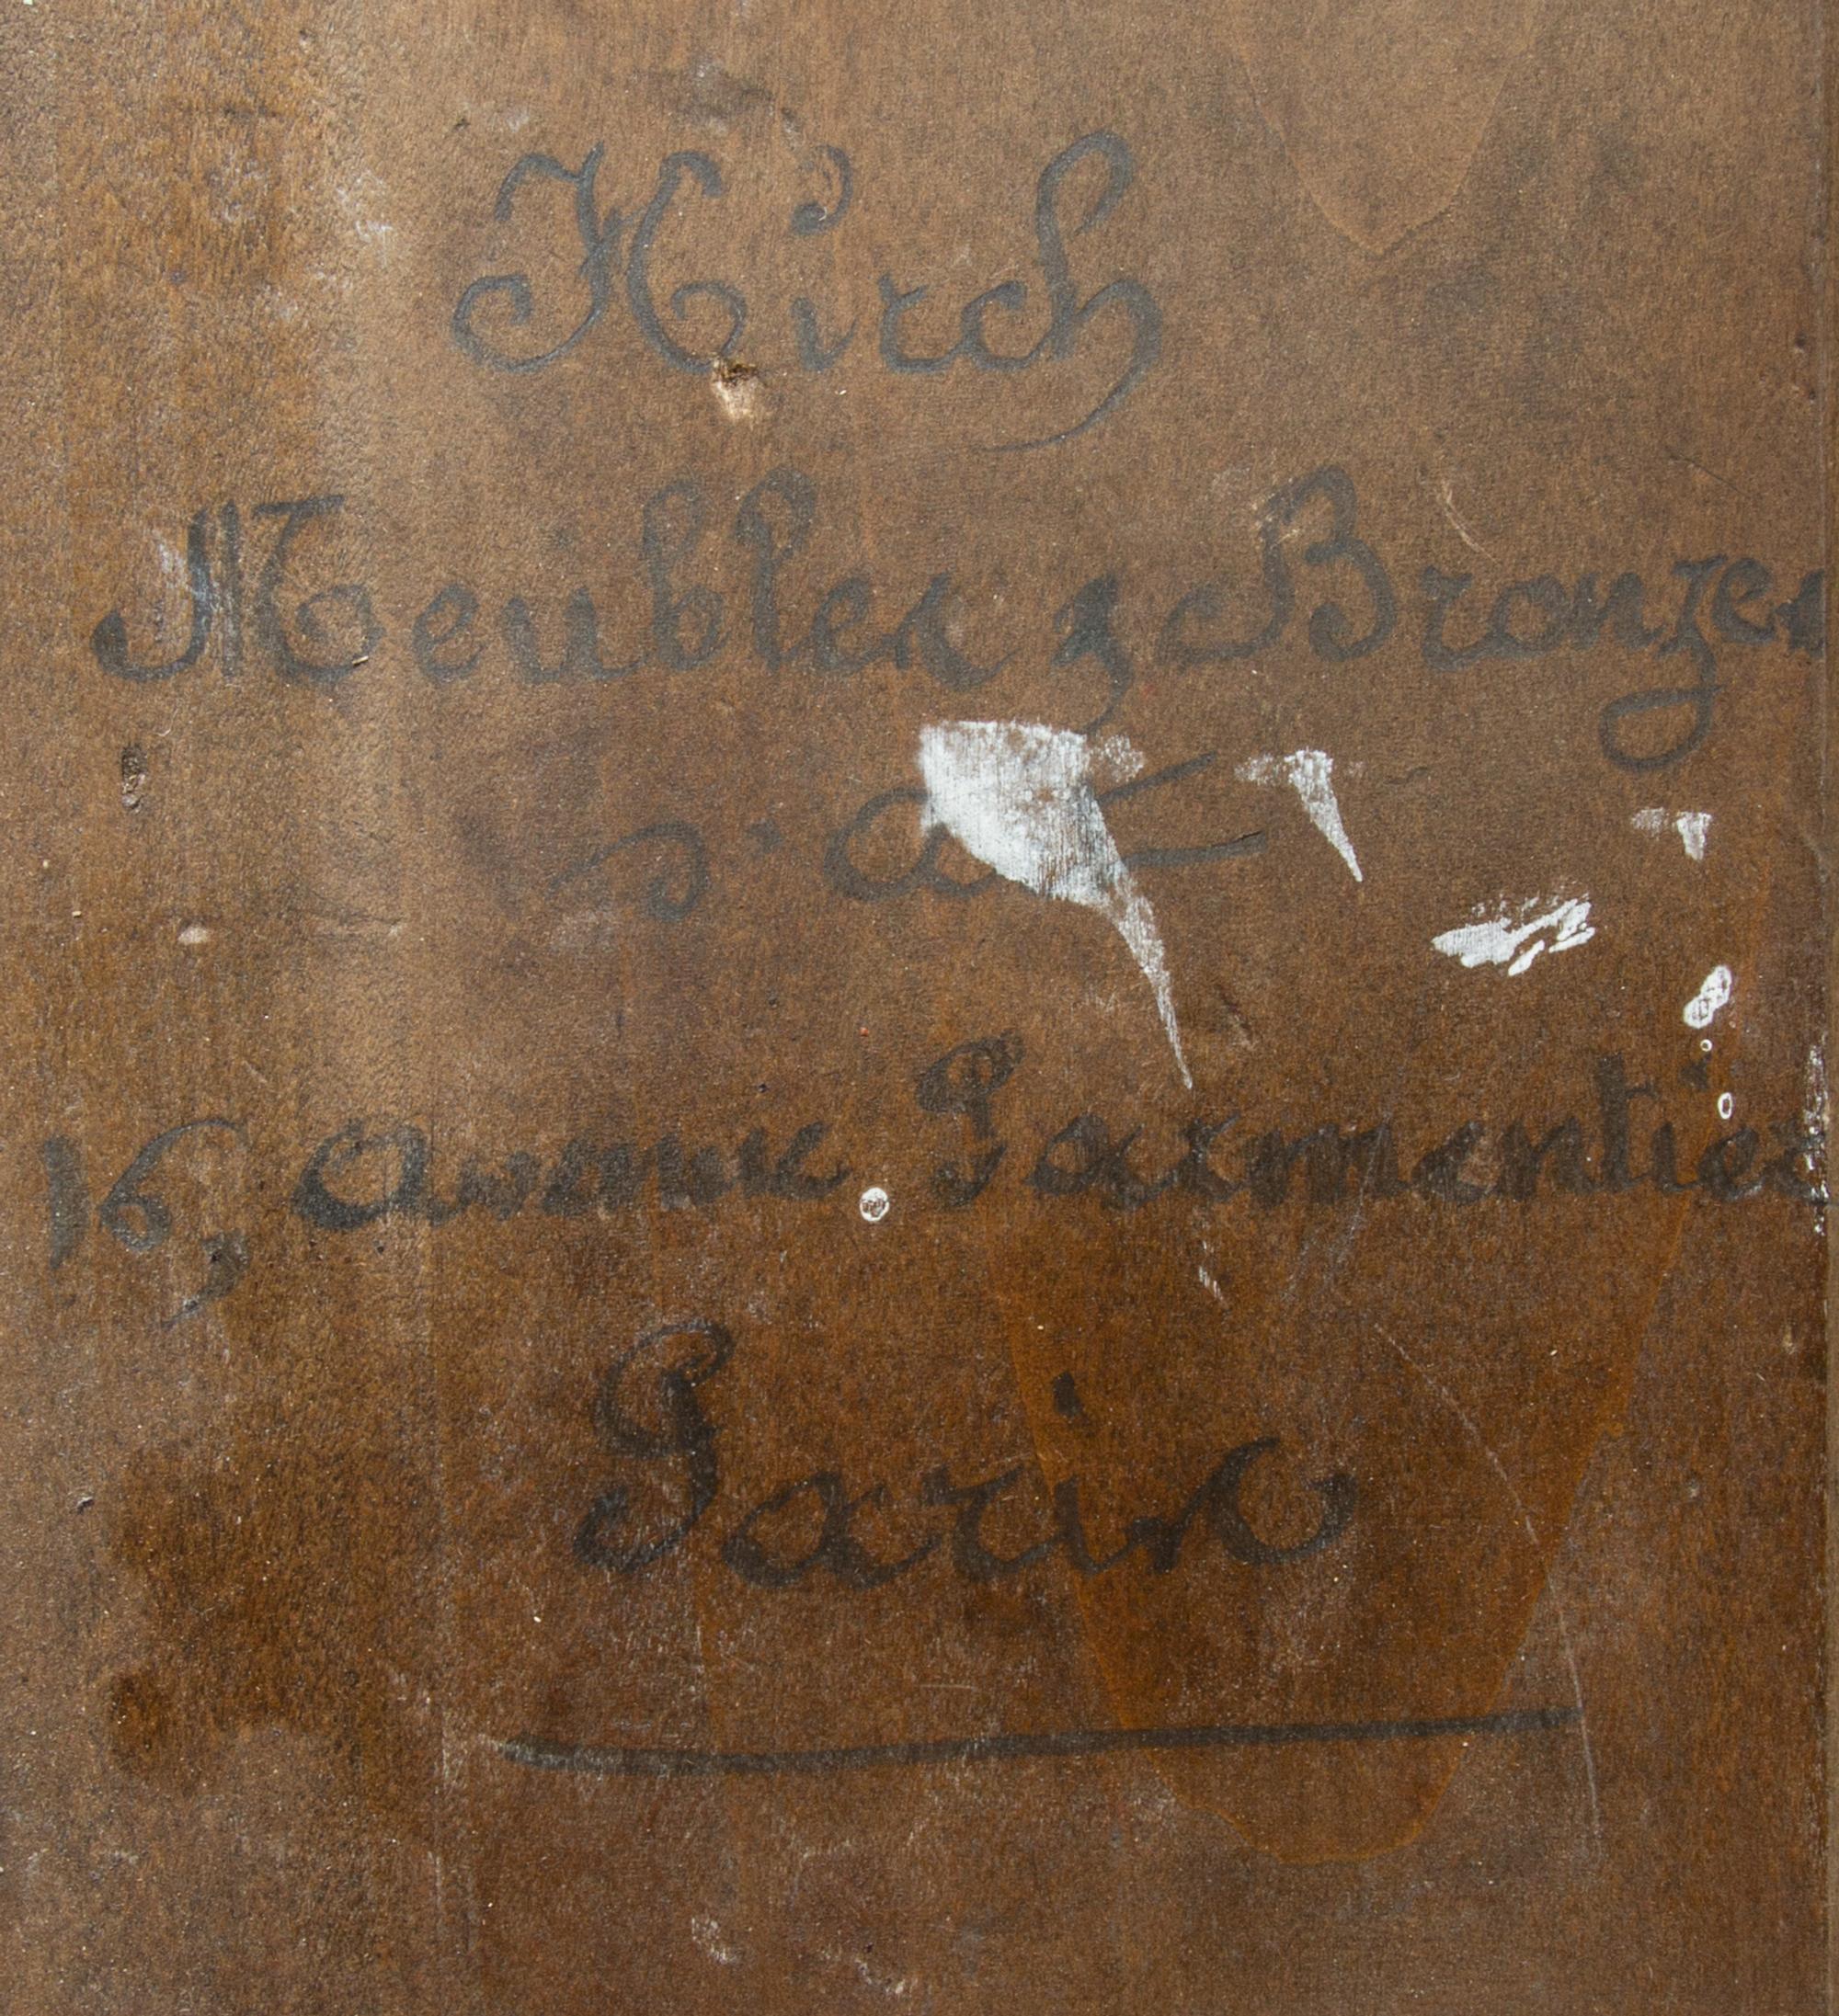 Kirch
Meubles & Bronzes
d'art
16, Avenue Parmentier
Paris